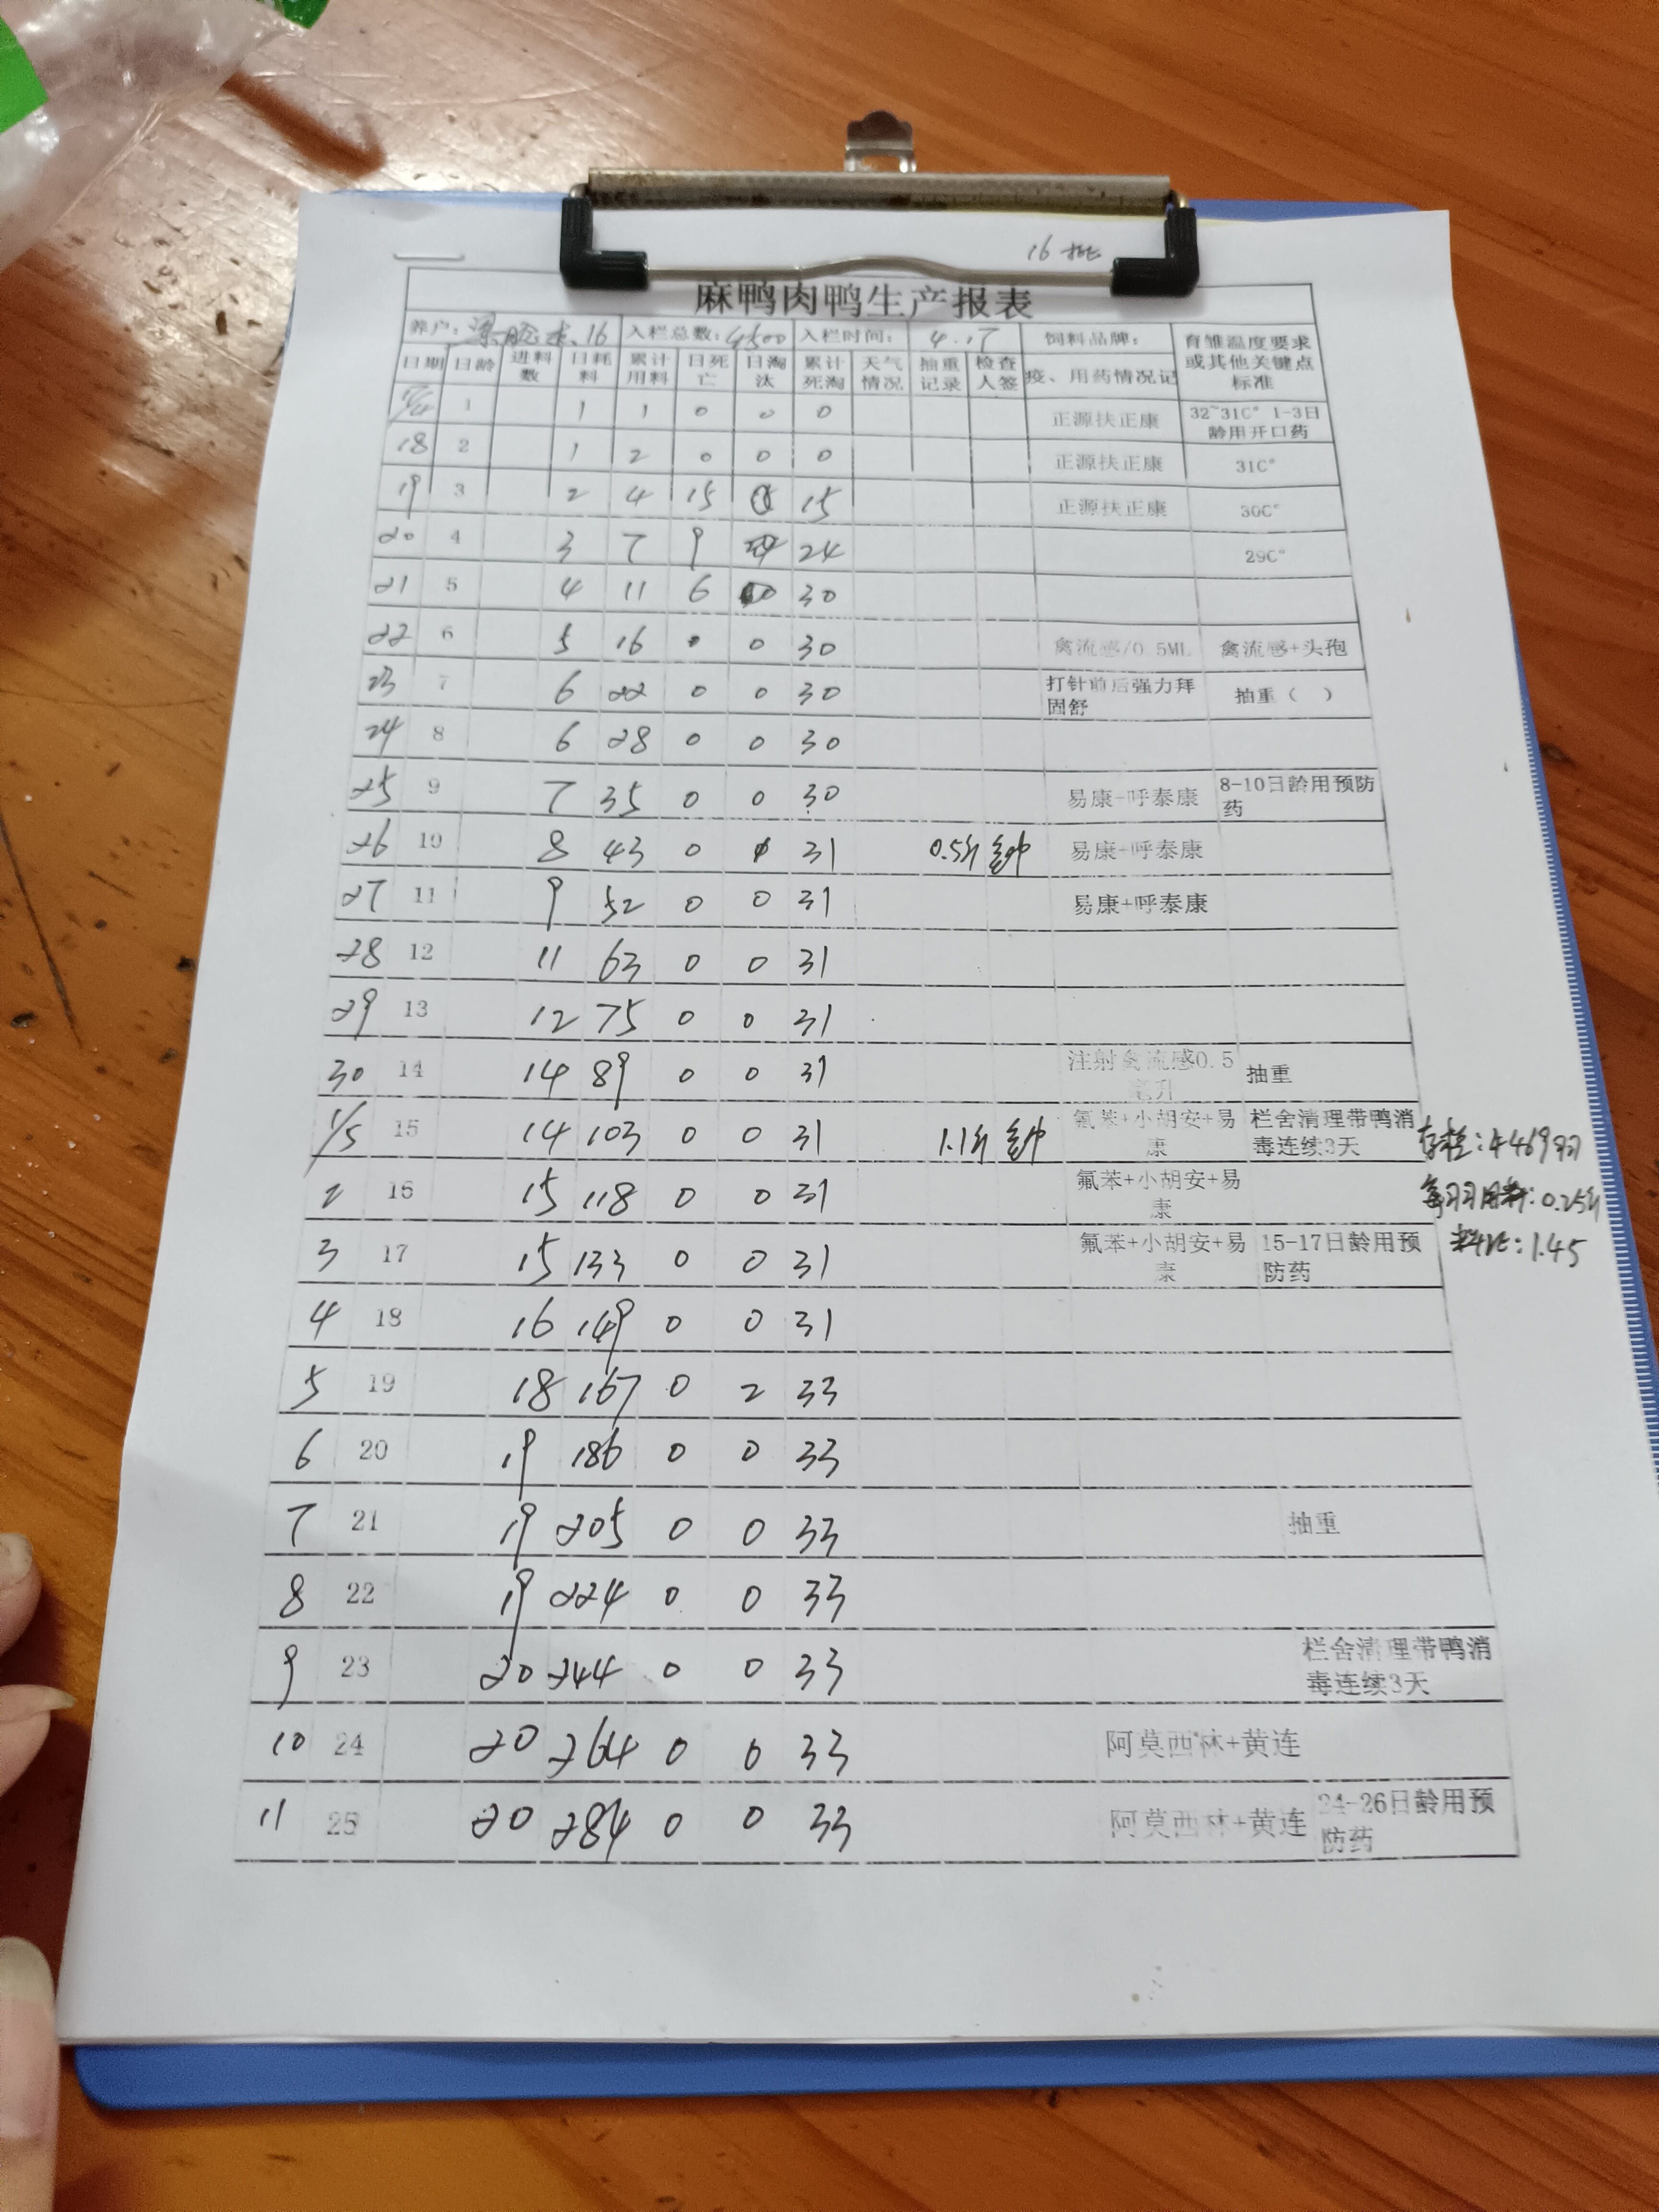 16批
麻鸭肉鸭生产报表
养户: 16 入栏总数: 4500 入栏时间: 4.17 饲料品牌: 育雏温度要求或其他关键点标准
日期 日龄 进料数 日耗料 累计用料 日死亡 日淘汰 累计死淘 天气情况 抽重记录 检查人签 疫、用药情况记
17/4 1 1 1 0 0 0 正源扶正康 32~31C° 1-3日龄用开口药
18 2 1 2 0 0 0 正源扶正康 31C°
19 3 2 4 15 0 15 正源扶正康 30C°
20 4 3 7 9 24 29C°
21 5 4 11 6 0 30
22 6 5 16 0 0 30 禽流感/0.5ML 禽流感+头孢
23 7 6 22 0 0 30 打针前后强力拜固舒 抽重( )
24 8 6 28 0 0 30
25 9 7 35 0 0 30 易康+呼泰康 8-10日龄用预防药
26 10 8 43 0 1 31 0.5斤 易康+呼泰康
27 11 9 52 0 0 31 易康+呼泰康
28 12 11 63 0 0 31
29 13 12 75 0 0 31
30 14 14 89 0 0 31 注射禽流感0.5毫升 抽重
1/5 15 14 103 0 0 31 1.1斤 氟苯+小胡安+易康 栏舍清理带鸭消毒连续3天 存栏:4469羽
2 16 15 118 0 0 31 氟苯+小胡安+易康 每羽用料:0.25斤
3 17 15 133 0 0 31 氟苯+小胡安+易康 15-17日龄用预防药 料比:1.45
4 18 16 149 0 0 31
5 19 18 167 0 2 33
6 20 19 186 0 0 33
7 21 19 205 0 0 33 抽重
8 22 19 224 0 0 33
9 23 20 244 0 0 33 栏舍清理带鸭消毒连续3天
10 24 20 264 0 0 33 阿莫西林+黄连
11 25 20 284 0 0 33 阿莫西林+黄连 24-26日龄用预防药